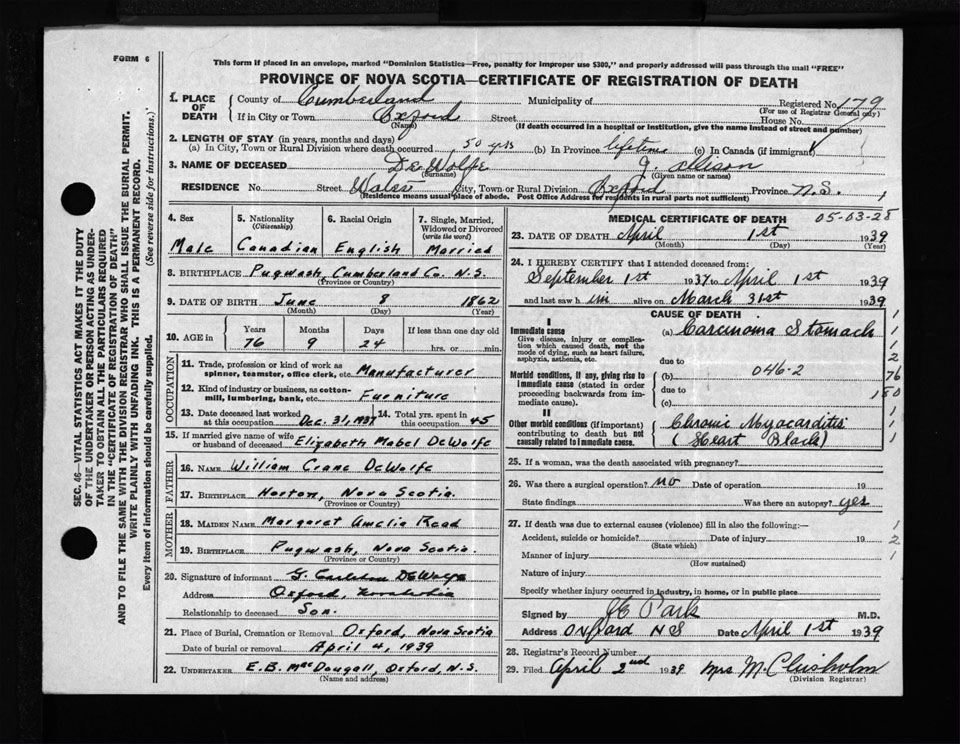 FORM 6
This form if placed in an envelope, marked "Dominion Statistics—Free, penalty for improper use $300," and properly addressed will pass through the mail "FREE"
PROVINCE OF NOVA SCOTIA—CERTIFICATE OF REGISTRATION OF DEATH
SEC. 46—VITAL STATISTICS ACT MAKES IT THE DUTY
OF THE UNDERTAKER OR PERSON ACTING AS UNDER-
TAKER TO OBTAIN ALL THE PARTICULARS REQUIRED
IN THE "CERTIFICATE OF REGISTRATION OF DEATH"
AND TO FILE THE SAME WITH THE DIVISION REGISTRAR WHO SHALL ISSUE THE BURIAL PERMIT.
WRITE PLAINLY WITH UNFADING INK. THIS IS A PERMANENT RECORD.
Every item of information should be carefully supplied. (See reverse side for instructions.)
1. PLACE OF DEATH County of Cumberland Municipality of Registered No. 179
(For use of Registrar General only)
If in City or Town Oxford Street House No.
(Name) (If death occurred in a hospital or institution, give the name instead of street and number)
2. LENGTH OF STAY (in years, months and days)
(a) In City, Town or Rural Division where death occurred 50 yrs (b) In Province lifetime (c) In Canada (if immigrant)
3. NAME OF DECEASED DeWolfe J. Allison
(Surname) (Given name or names)
RESIDENCE No. Street Water City, Town or Rural Division Oxford Province N.S. 1
(Residence means usual place of abode. Post Office Address for residents in rural parts not sufficient)
4. Sex Male
5. Nationality (Citizenship) Canadian
6. Racial Origin English
7. Single, Married, Widowed or Divorced (write the word) Married
8. BIRTHPLACE Pugwash, Cumberland Co. N.S.
(Province or Country)
9. DATE OF BIRTH June 8 1862
(Month) (Day) (Year)
10. AGE in Years Months Days If less than one day old
76 9 24 hrs. or min.
OCCUPATION
11. Trade, profession or kind of work as spinner, teamster, office clerk, etc. Manufacturer
12. Kind of industry or business, as cotton-mill, lumbering, bank, etc. Furniture
13. Date deceased last worked at this occupation Dec. 31, 1937 14. Total yrs. spent in this occupation 45
15. If married give name of wife or husband of deceased Elizabeth Mabel DeWolfe
FATHER
16. NAME William Crane DeWolfe
17. BIRTHPLACE Horton, Nova Scotia.
(Province or Country)
MOTHER
18. MAIDEN NAME Margaret Amelia Read
19. BIRTHPLACE Pugwash, Nova Scotia.
(Province or Country)
20. Signature of informant G. Carleton DeWolfe
Address Oxford, Nova Scotia
Relationship to deceased Son.
21. Place of Burial, Cremation or Removal Oxford, Nova Scotia
Date of burial or removal April 4, 1939
22. UNDERTAKER E.B. MacDougall, Oxford, N.S.
(Name and address)
MEDICAL CERTIFICATE OF DEATH 05-03-28
23. DATE OF DEATH April 1st 1939
(Month) (Day) (Year)
24. I HEREBY CERTIFY that I attended deceased from:
September 1st 1937 to April 1st 1939
and last saw h im alive on March 31st 1939
CAUSE OF DEATH
I
Immediate cause (a) Carcinoma Stomach
Give disease, injury or complication which caused death, not the mode of dying, such as heart failure, asphyxia, asthenia, etc.
due to
Morbid conditions, if any, giving rise to immediate cause (stated in order proceeding backwards from immediate cause). (b) 046-2
due to
(c)
II
Other morbid conditions (if important) contributing to death but not causally related to immediate cause. Chronic Myocarditis
(Heart Block)
1
1
1
2
76
180
1
1
1
25. If a woman, was the death associated with pregnancy?
26. Was there a surgical operation? no Date of operation 19
State findings Was there an autopsy? yes
27. If death was due to external causes (violence) fill in also the following:—
Accident, suicide or homicide? Date of injury 19
(State which)
Manner of injury
(How sustained)
Nature of injury
Specify whether injury occurred in industry, in home, or in public place
1
2
1
Signed by J E Park M.D.
Address Oxford NS Date April 1st 1939
28. Registrar's Record Number
29. Filed April 2nd 1939 Mrs M. Chisholm
(Division Registrar)